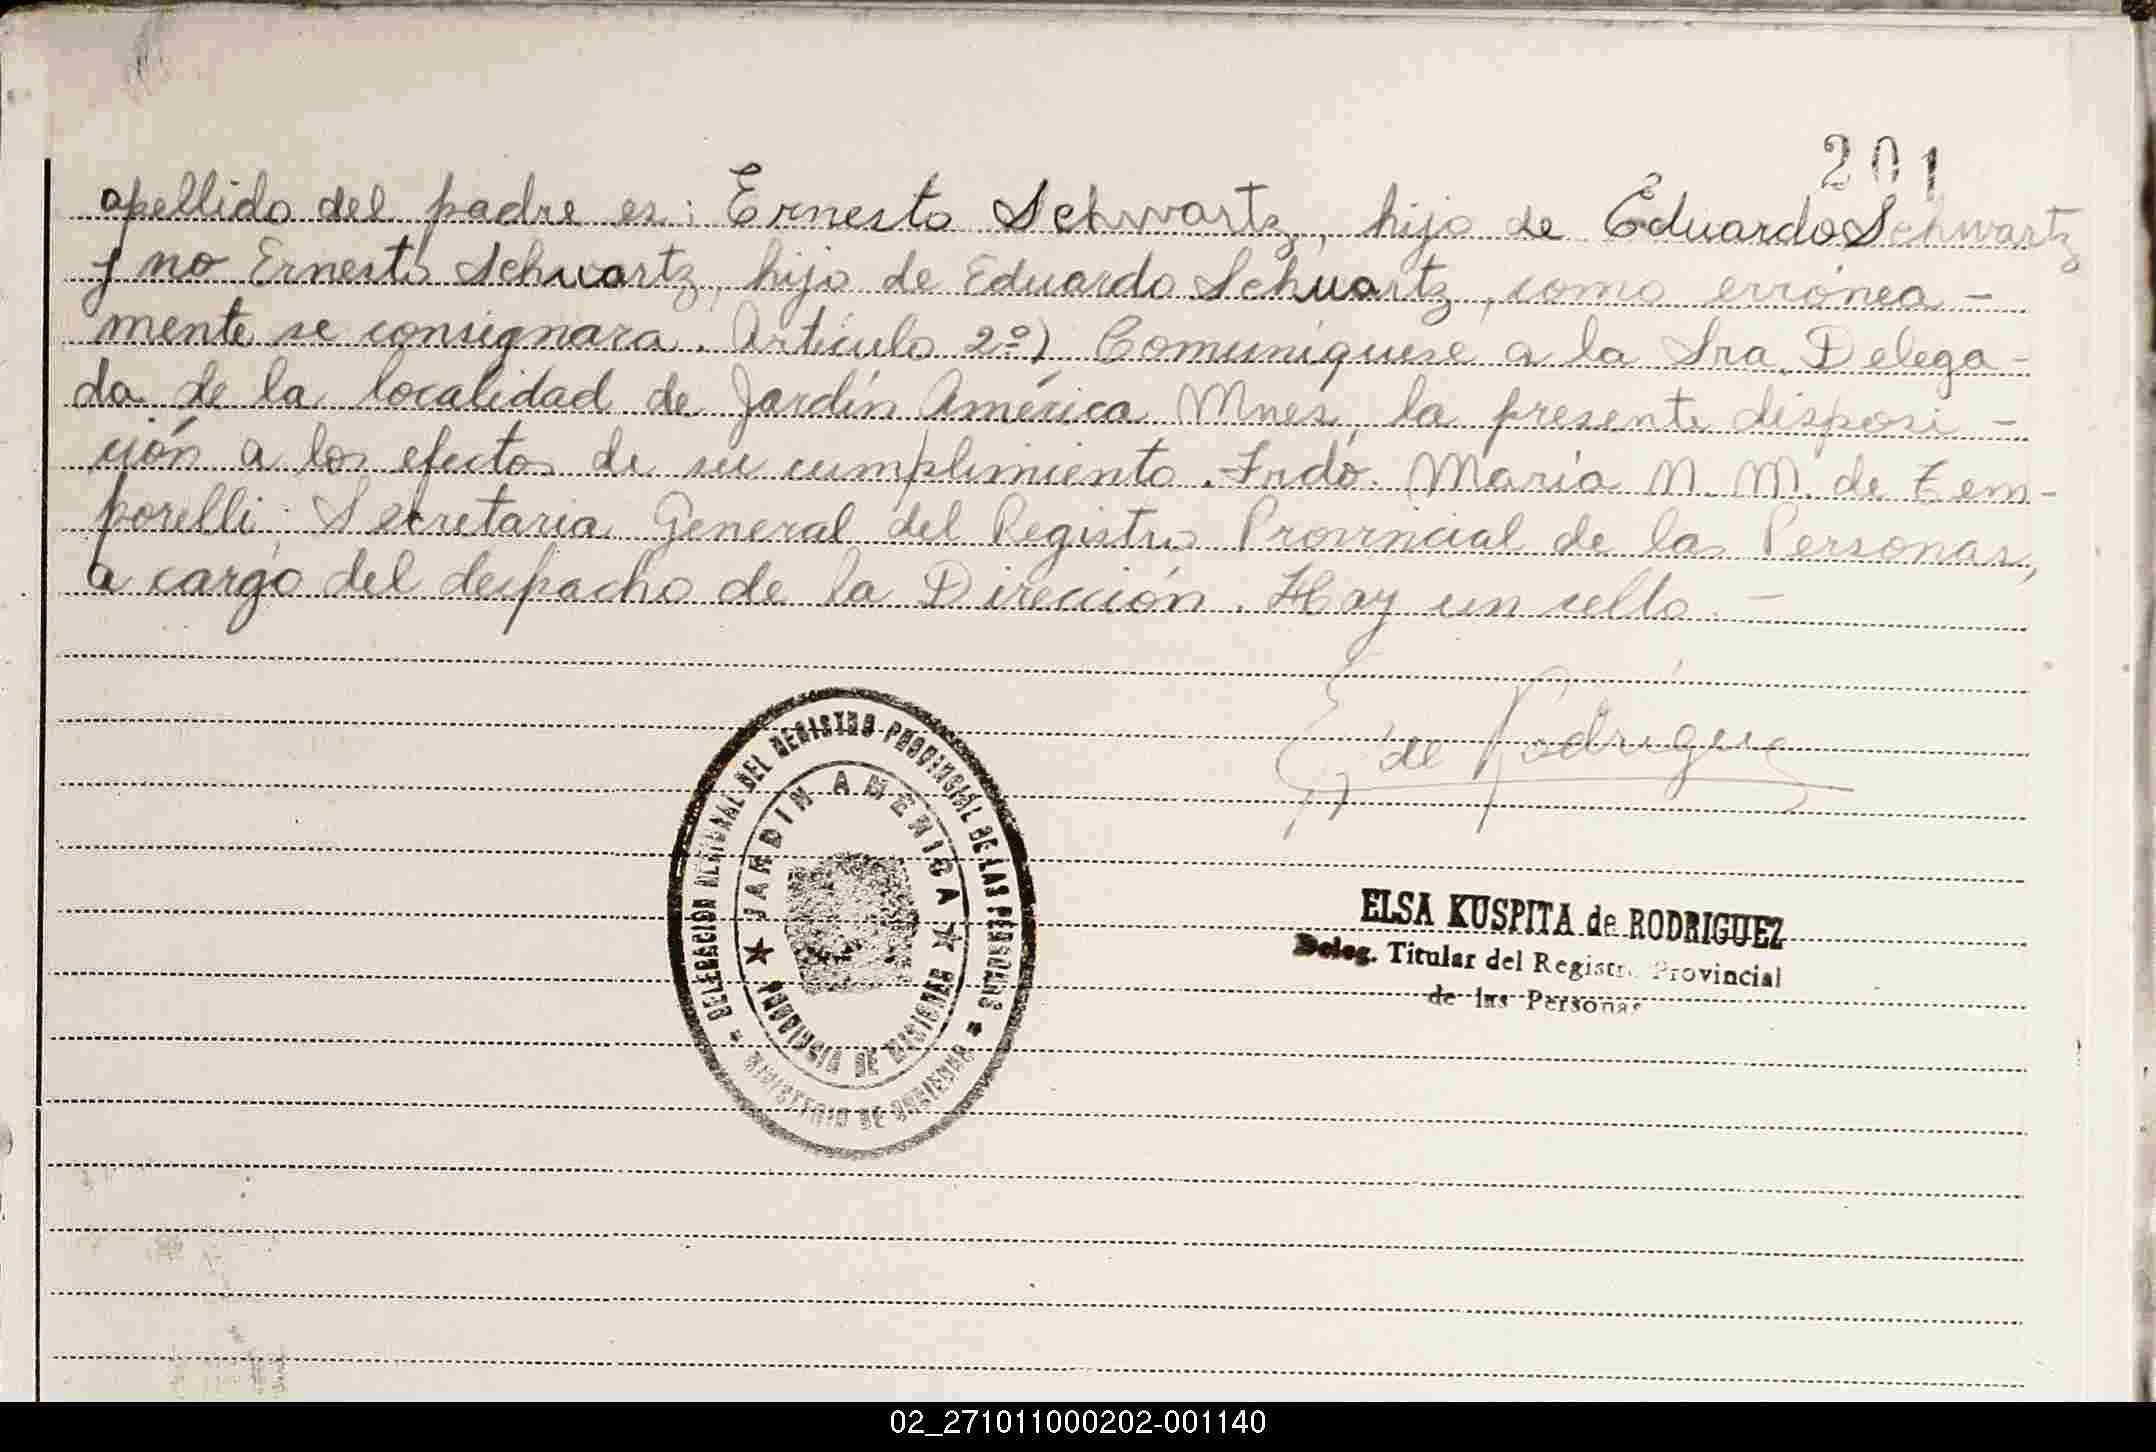 201
apellido del padre es: Ernesto Schwartz, hijo de Eduardo Schwartz
y no Ernesto Schuartz, hijo de Eduardo Schuartz, como errónea-
mente se consignara. Artículo 2º) Comuníquese a la Sra. Delega-
da de la localidad de Jardín América Mnes, la presente disposi-
ción a los efectos de su cumplimiento. Fndo. María N. M. de Tem-
porelli. Secretaria General del Registro Provincial de las Personas,
a cargo del despacho de la Dirección. Hay un sello.-
E. de Rodríguez
DELEGACION REGIONAL DEL REGISTRO PROVINCIAL DE LAS PERSONAS
JARDIN AMERICA
PROVINCIA DE MISIONES
MINISTERIO DE GOBIERNO
ELSA KUSPITA de RODRIGUEZ
Deleg. Titular del Registro Provincial
de las Personas
02_271011000202-001140